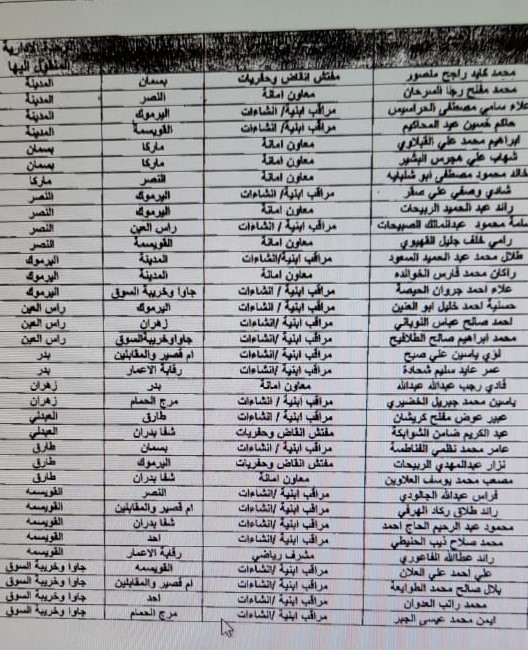 الادارية
المنقول اليها
محمد كايد راجح منصور مفتش انقاض وحفريات بسمان المدينة
محمد مفلح رجا السرحان معاون امانة النصر المدينة
علاء سامي مصطفى الحراسيس مراقب ابنية/ انشاءات اليرموك المدينة
حاكم حسين عبد المحاكيم مراقب ابنية/ انشاءات القويسمة المدينة
ابراهيم محمد علي القيلاوي معاون امانة ماركا بسمان
شهاب علي مجرس البشير معاون امانة ماركا بسمان
خالد محمود مصطفى ابو شلبايه معاون امانة النصر ماركا
شادي وصفي علي صقر مراقب ابنية/ انشاءات اليرموك النصر
رائد عبد الحميد الربيحات معاون امانة اليرموك النصر
محمود الصبيحات مراقب ابنية / انشاءات راس العين النصر
رامي خلف جليل القهيوي معاون امانة القويسمة النصر
طلال محمد عبد الحميد السعود مراقب ابنية/انشاءات المدينة اليرموك
راكان محمد فارس الخوالده معاون امانة المدينة اليرموك
علاء احمد جروان الحيصة مراقب ابنية / انشاءات جاوا وخريبة السوق اليرموك
حسنية احمد خليل ابو العنين مراقب ابنية / انشاءات اليرموك راس العين
احمد صالح عباس النوباني مراقب ابنية /انشاءات زهران راس العين
محمد ابراهيم صالح الطلافيح مراقب ابنية /انشاءات جاواوخريبةالسوق راس العين
لؤي ياسين علي صبح مراقب ابنية /انشاءات ام قصير والمقابلين بدر
عمر عايد سليم شحادة مراقب ابنية /انشاءات رقابة الاعمار بدر
فادي رجب عبدالله عبدالله معاون امانة بدر زهران
ياسين محمد جبريل الخضيري مراقب ابنية / انشاءات مرج الحمام زهران
عبير عوض مفلح كريشان مراقب ابنية /انشاءات طارق العبدلي
عبد الكريم ضامن الشوابكة مفتش انقاض وحفريات شفا بدران العبدلي
عامر محمد نظمي مراقب ابنية /انشاءات بسمان طارق
نزار عبدالمهدي الربيحات مفتش انقاض وحفريات اليرموك طارق
مصعب محمد يوسف العلاوين معاون امانة شفا بدران طارق
فراس عبدالله الجالودي مراقب ابنية /انشاءات النصر القويسمه
رائد طلاق ركاد الهرفي مراقب ابنية /انشاءات ام قصير والمقابلين القويسمه
محمود عبد الرحيم الحاج احمد مراقب ابنية /انشاءات شفا بدران القويسمه
محمد صلاح ذيب الحنيطي مراقب ابنية /انشاءات احد القويسمه
رائد عطاالله الفاعوري مشرف رياضي رقابة الاعمار القويسمه
علي احمد علي العلان مراقب ابنية /انشاءات القويسمه جاوا وخريبة السوق
بلال صالح محمد الطوايعة مراقب ابنية /انشاءات ام قصير والمقابلين جاوا وخريبة السوق
محمد راتب العدوان مراقب ابنية /انشاءات احد جاوا وخريبة السوق
ايمن محمد عيسى الجبر مراقب ابنية /انشاءات مرج الحمام جاوا وخريبة السوق